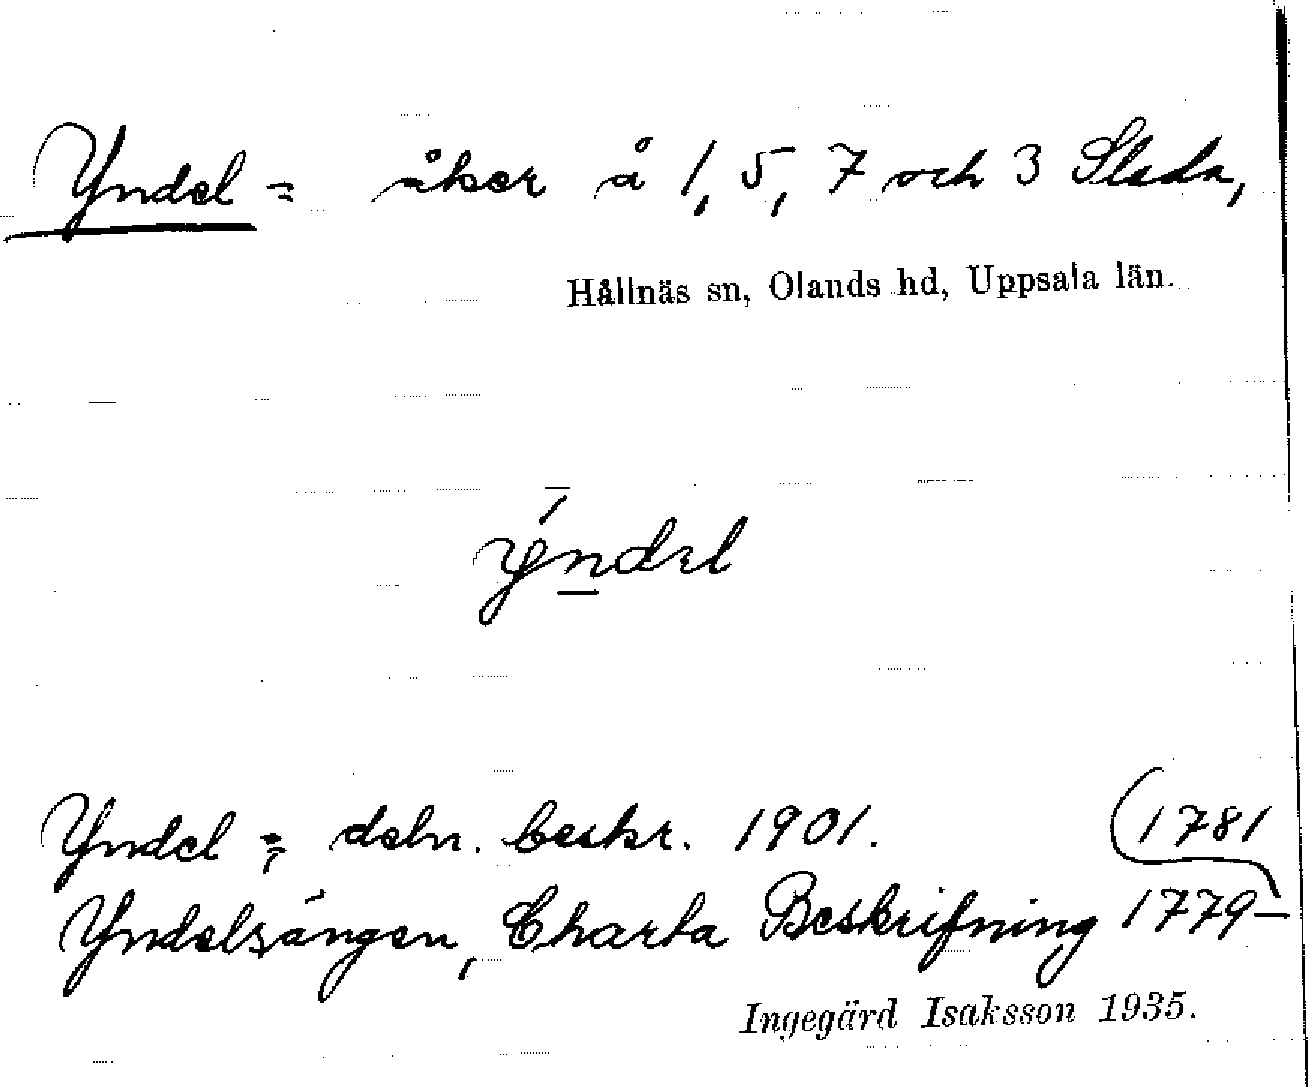 Yndel = åker å 1, 5, 7 och 3 Slada,
Hållnäs sn, Olands hd, Uppsala län.
ýndel
Yndel =, deln. beskr. 1901.
Yndelsängen, Charta Beskrifning 1779–1781
Ingegärd Isaksson 1935.